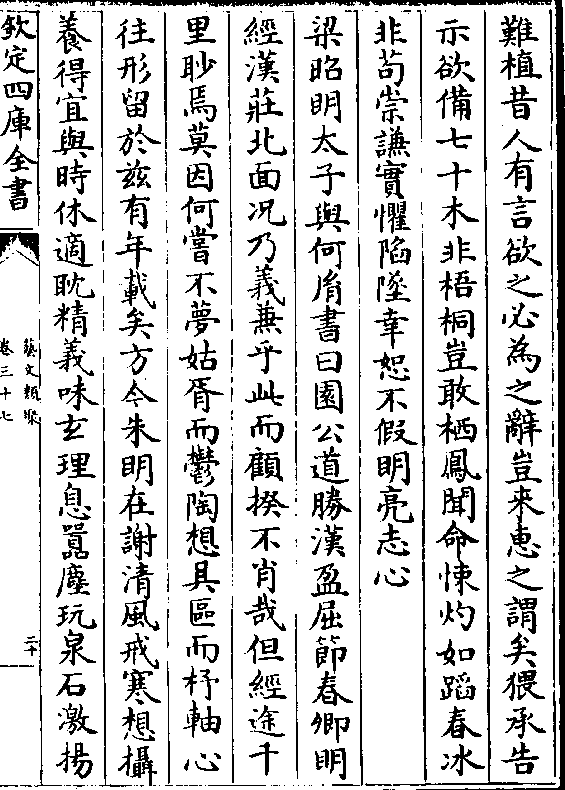 難植昔人有言欲之必為之辭豈来恵之謂矣猥承告
示欲備七十木非梧桐豈敢栖鳳聞命悚灼如蹈春冰
非茍崇謙實懼陷墜幸恕不假明亮志心
梁昭明太子與何𦙍書曰園公道勝漢盈屈節春卿明
經漢莊北面况乃義兼乎此而顧揆不肖哉但經途千
里眇焉莫因何嘗不夢姑胥而鬱陶想具區而杼軸心
往形留於兹有年載矣方今朱明在謝清風戒寒想攝
養得宜與時休適耽精義味𤣥理息囂塵玩泉石激揚
欽定四庫全書
藝文類聚
卷三十七
二十